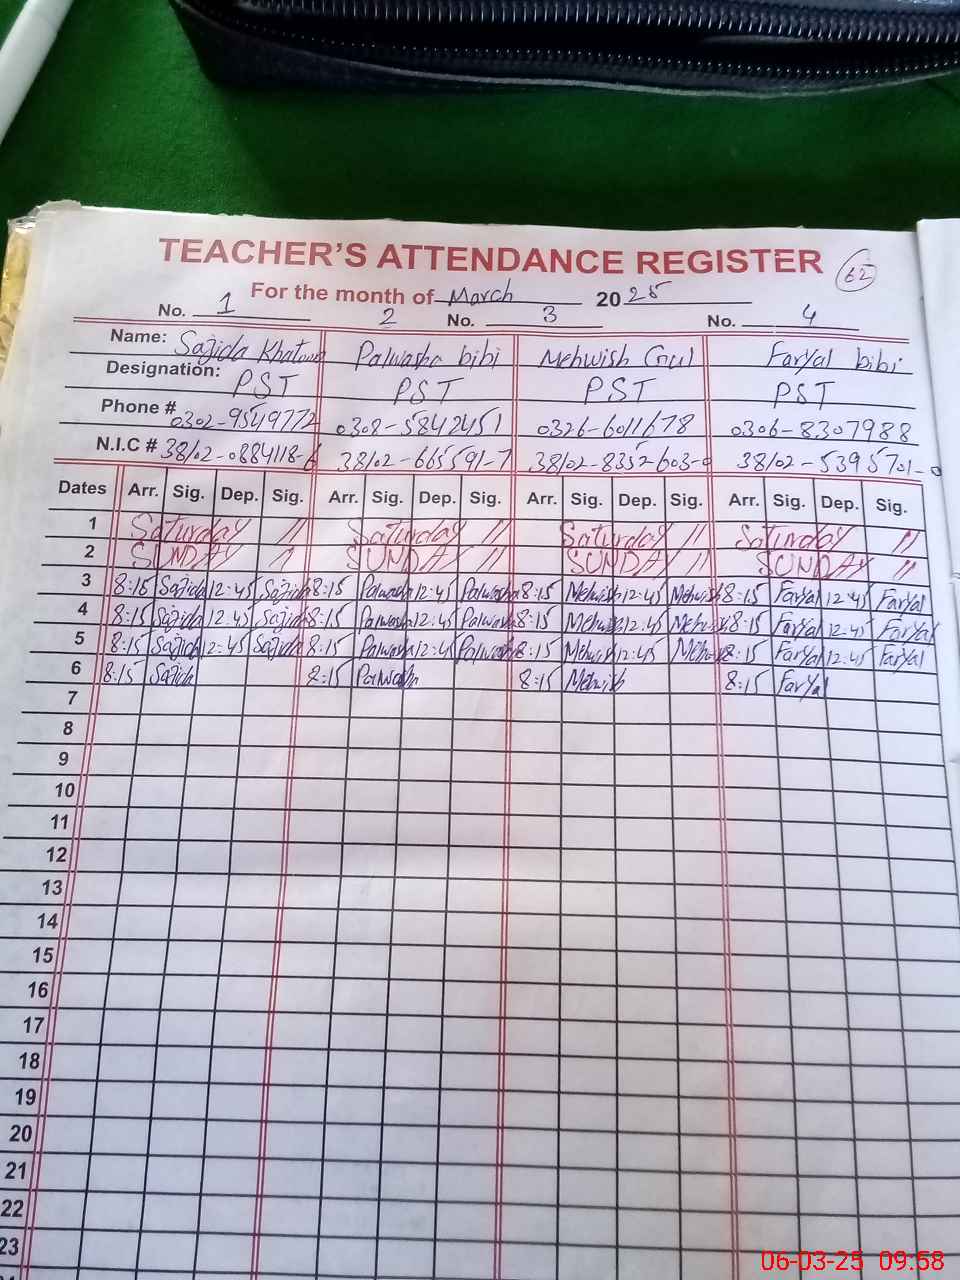 TEACHER'S ATTENDANCE REGISTER 62
For the month of March 2025
No. 1 2 No. 3 No. 4
Name: Sajida Khatoon Palwasha bibi Mehwish Gul Faryal bibi
Designation: PST PST PST PST
Phone # 0302-9549772 0308-5842451 0326-6011678 0306-8307988
N.I.C # 38102-0884118-6 38102-665591-7 38102-8352603-0 38102-5395701-0
Dates Arr. Sig. Dep. Sig. Arr. Sig. Dep. Sig. Arr. Sig. Dep. Sig. Arr. Sig. Dep. Sig.
1 Saturday // Saturday // Saturday // Saturday //
2 SUNDAY // SUNDAY // SUNDAY // SUNDAY //
3 8:15 Sajida 12:45 Sajida 8:15 Palwasha 12:45 Palwasha 8:15 Mehwish 12:45 Mehwish 8:15 Faryal 12:45 Faryal
4 8:15 Sajida 12:45 Sajida 8:15 Palwasha 12:45 Palwasha 8:15 Mehwish 12:45 Mehwish 8:15 Faryal 12:45 Faryal
5 8:15 Sajida 12:45 Sajida 8:15 Palwasha 12:45 Palwasha 8:15 Mehwish 12:45 Mehwish 8:15 Faryal 12:45 Faryal
6 8:15 Sajida 8:15 Palwasha 8:15 Mehwish 8:15 Faryal
7
8
9
10
11
12
13
14
15
16
17
18
19
20
21
22
23
06-03-25 09:58